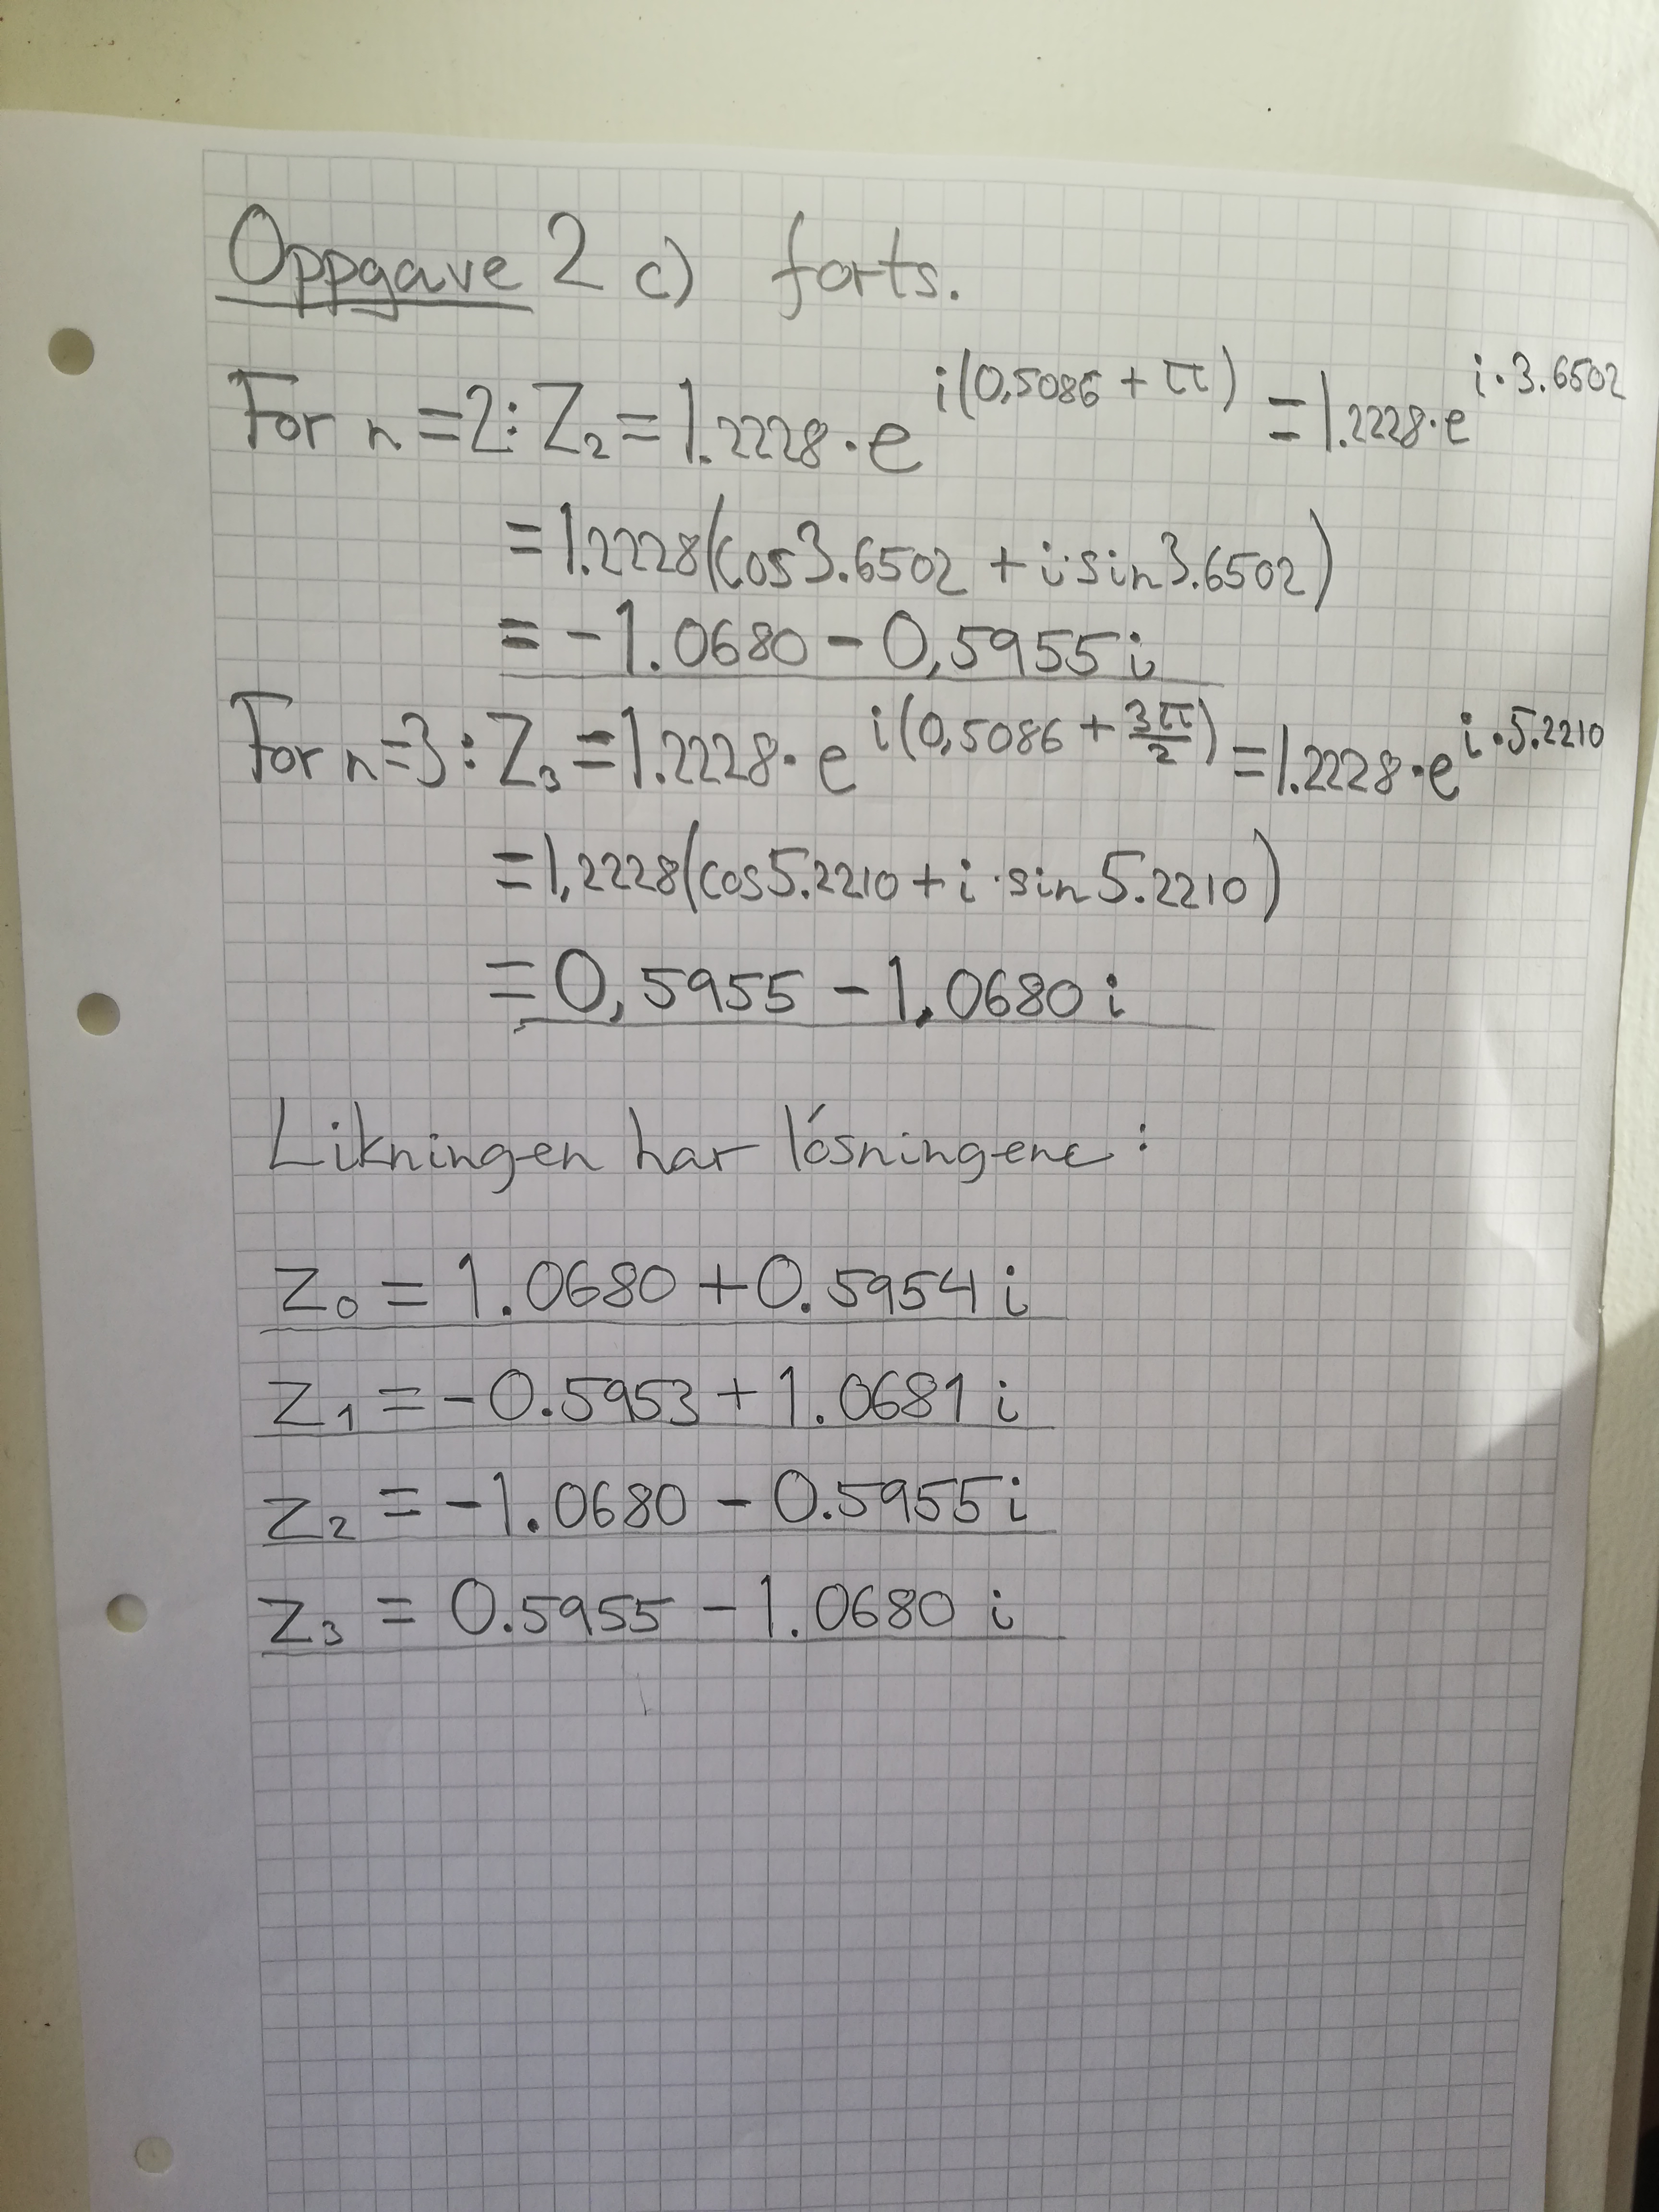 Oppgave 2 c) forts.
For n=2: Z₂ = 1.2228·e^{i(0,5086 + π)} = 1.2228·e^{i·3.6502}
= 1.2228(cos3.6502 + i·sin3.6502)
= -1.0680 - 0,5955 i
For n=3: Z₃ = 1.2228·e^{i(0,5086 + 3π/2)} = 1.2228·e^{i·5.2210}
= 1,2228(cos5.2210 + i·sin5.2210)
= 0,5955 - 1,0680 i
Likningen har lósningene:
Z₀ = 1.0680 + 0.5954 i
Z₁ = -0.5953 + 1.0681 i
Z₂ = -1.0680 - 0.5955 i
Z₃ = 0.5955 - 1.0680 i